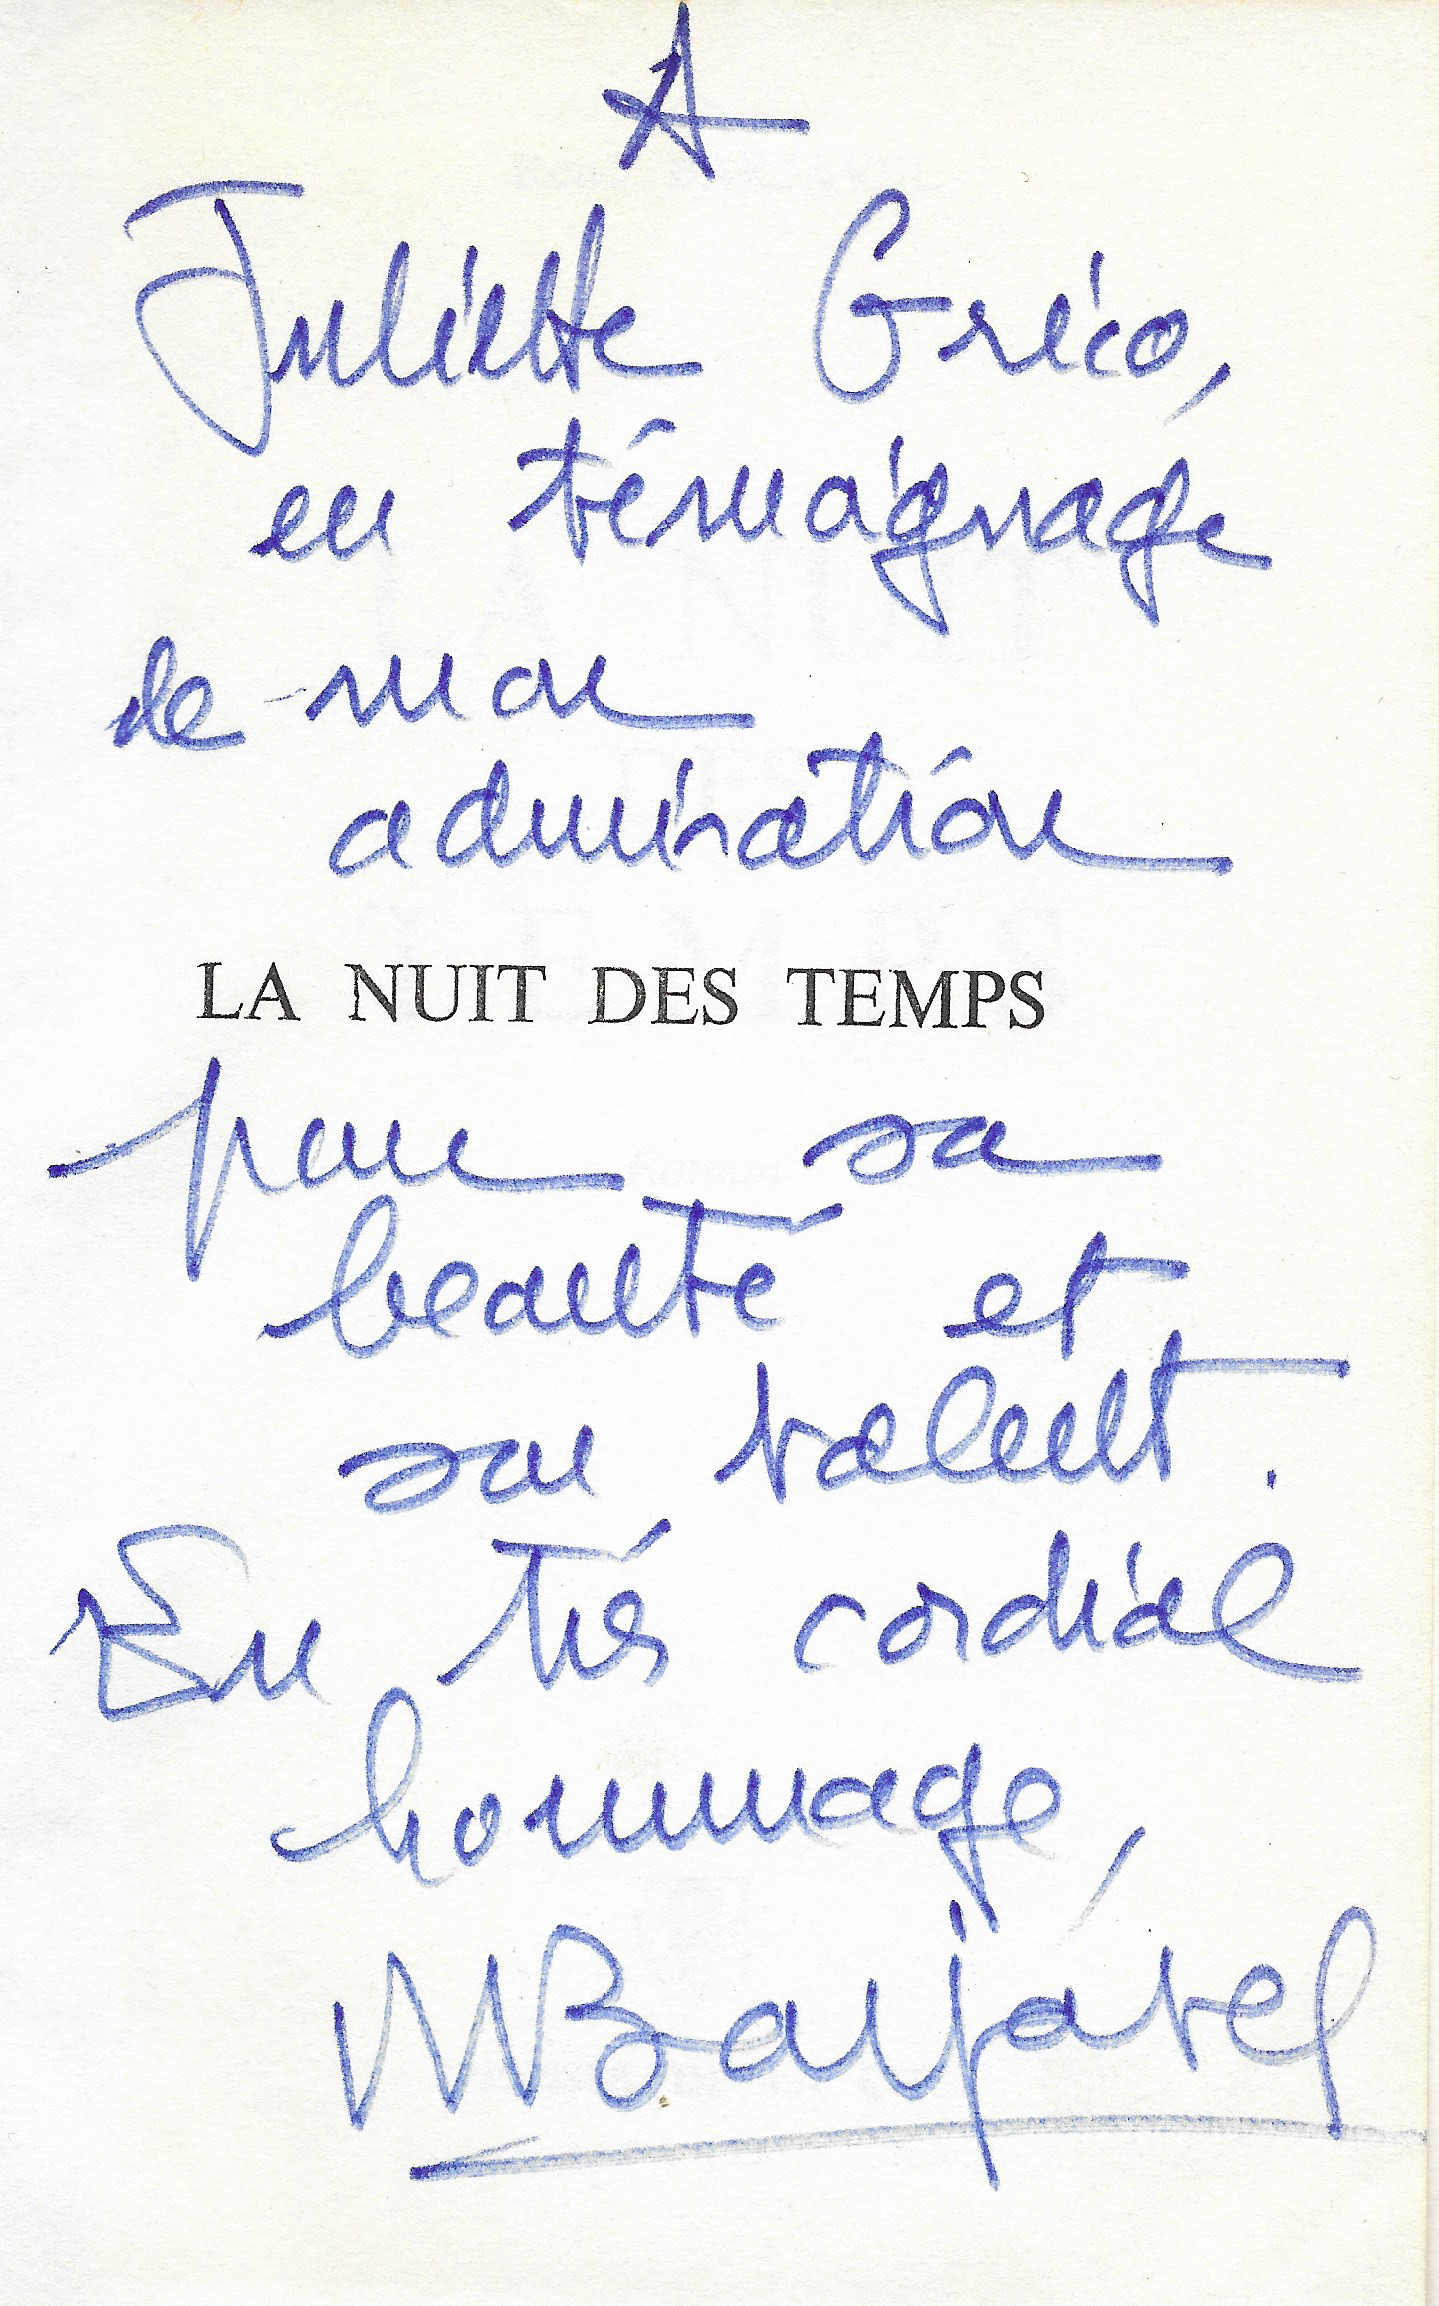 A
Juliette Gréco,
en témoignage
de mon
admiration
LA NUIT DES TEMPS
pour sa
beauté et
son talent.
En très cordial
hommage,